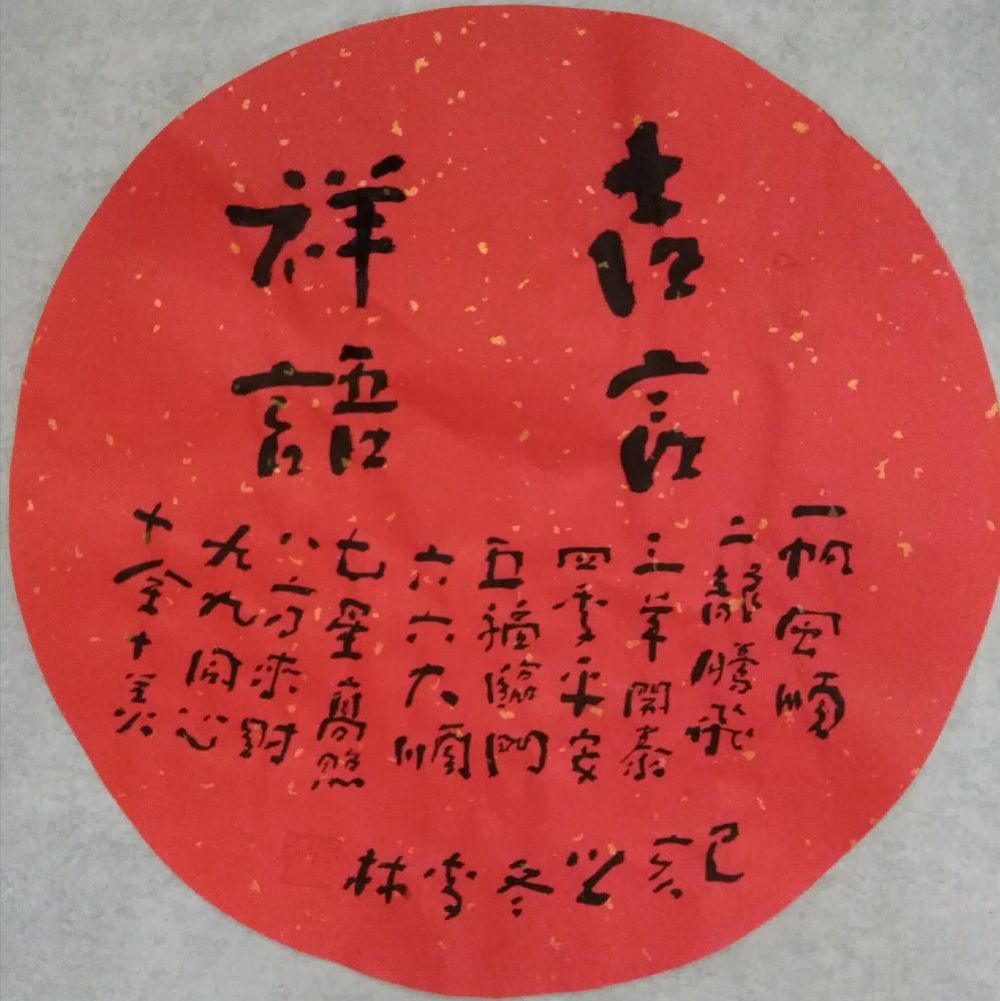 吉言
祥語
一帆風順
二龍騰飛
三羊開泰
四季平安
五福臨門
六六大順
七星高照
八方來財
九九同心
十全十美
己亥之冬李林